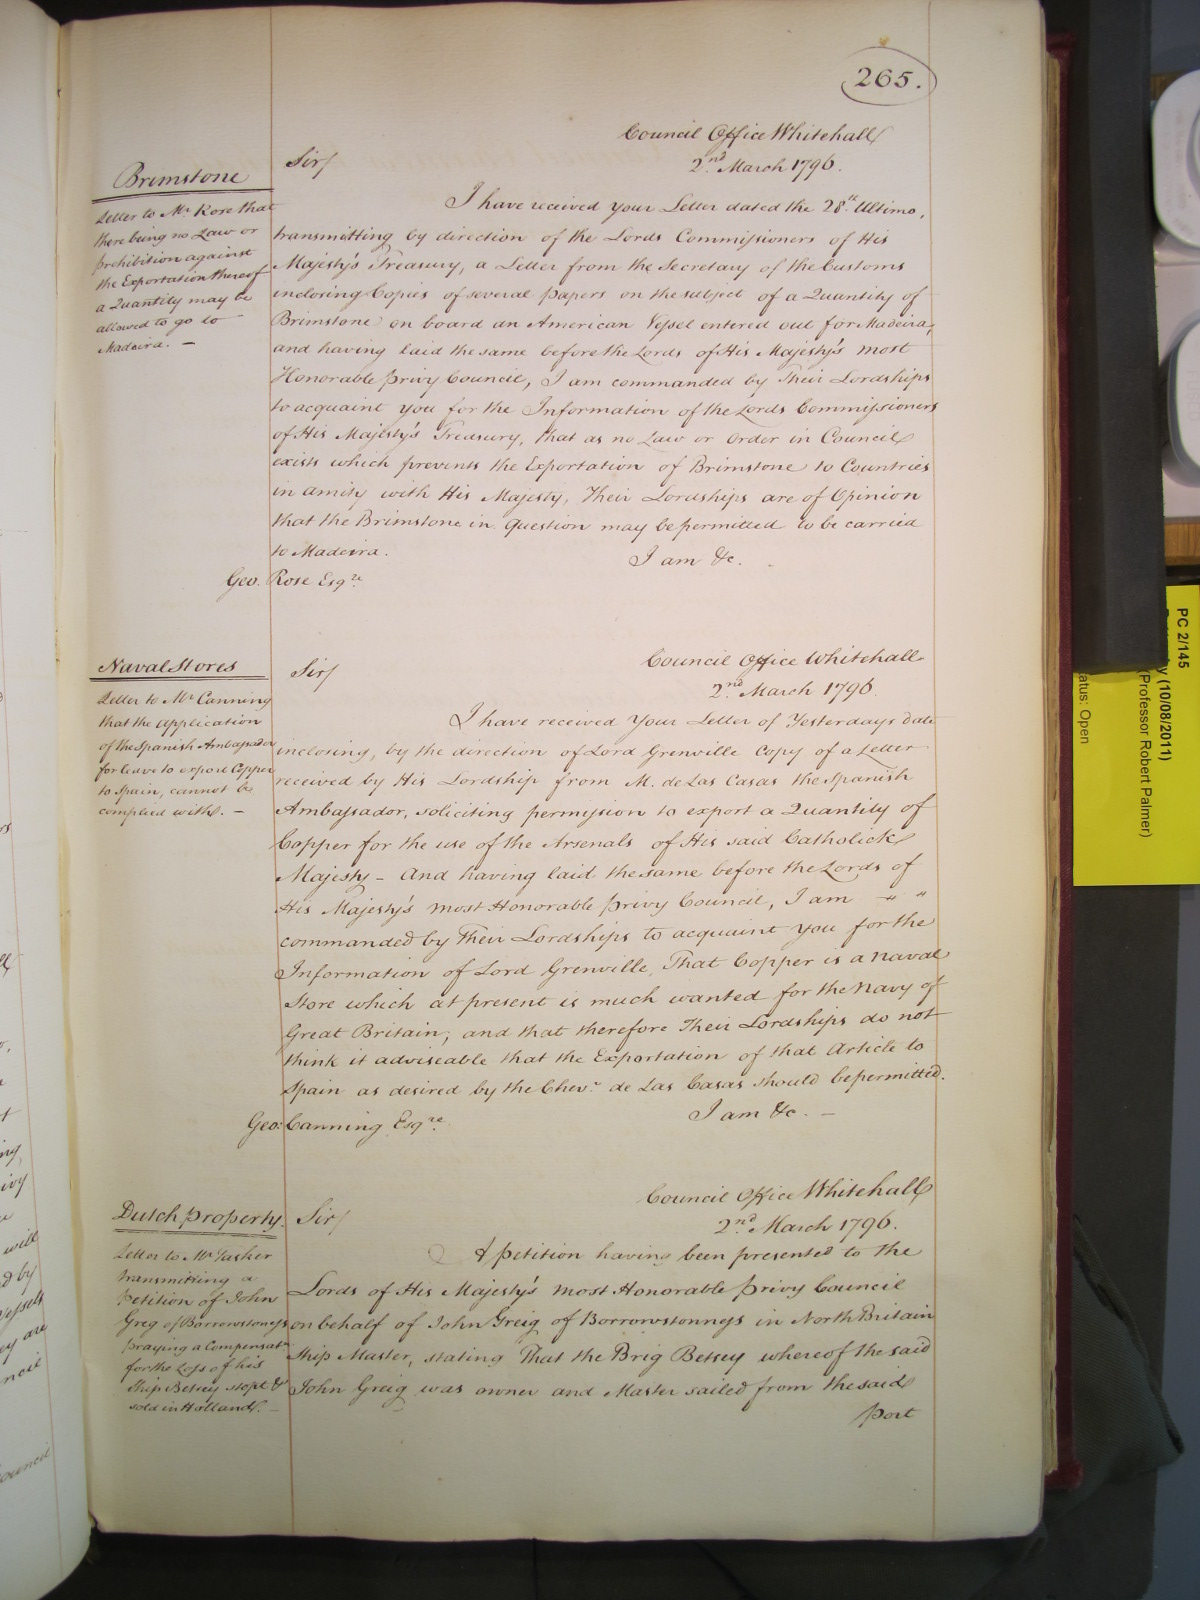 265.
Council Office Whitehall
2nd March 1796.
Brimstone
Letter to Mr Rose that
there being no Law or
prohibition against
the Exportation thereof
a Quantity may be
allowed to go to
Madeira. —
Sir/
I have received your Letter dated the 28th Ultimo,
transmitting by direction of the Lords Commissioners of His
Majesty's Treasury, a Letter from the Secretary of the Customs
inclosing Copies of several papers on the subject of a Quantity of
Brimstone on board an American Vessel entered out for Madeira,
and having laid the same before the Lords of His Majesty's most
Honorable privy Council, I am commanded by Their Lordships
to acquaint you for the Information of the Lords Commissioners
of His Majesty's Treasury, that as no Law or Order in Council
exists which prevents the Exportation of Brimstone to Countries
in amity with His Majesty, Their Lordships are of Opinion
that the Brimstone in Question may be permitted to be carried
to Madeira.
I am &c.
Geo. Rose Esqre
Council Office Whitehall
2nd March 1796.
Naval Stores
Letter to Mr Canning
that the application
of the Spanish Ambassador
for leave to export Copper
to Spain, cannot be
complied with. —
Sir/
I have received Your Letter of Yesterdays date
inclosing, by the direction of Lord Grenville Copy of a Letter
received by His Lordship from M. de Las Casas the Spanish
Ambassador, soliciting permission to export a Quantity of
Copper for the use of the Arsenals of His said Catholick
Majesty — And having laid the same before the Lords of
His Majesty's most Honorable privy Council, I am
commanded by Their Lordships to acquaint you for the
Information of Lord Grenville, That Copper is a Naval
Store which at present is much wanted for the Navy of
Great Britain; and that therefore Their Lordships do not
think it adviseable that the Exportation of that Article to
Spain as desired by the Chevr. de Las Casas should be permitted.
I am &c. —
Geo: Canning Esqre
Council Office Whitehall
2nd March 1796.
Dutch property.
Letter to Mr Yasker
transmitting a
Petition of John
Greg of Borrowstoness
praying a Compensatn
for the Loss of his
Ship Betsey stopt &
sold in Holland. —
Sir/
A petition having been presented to the
Lords of His Majesty's most Honorable privy Council
on behalf of John Greig of Borrowstonness in North Britain
Ship Master, stating "That the Brig Betsey whereof the said
John Greig was owner and Master sailed from the said
port
PC 2/145
(10/08/2011)
(Professor Robert Palmer)
atus: Open
will
d by
Vessels
ey are
ncil
ouncil